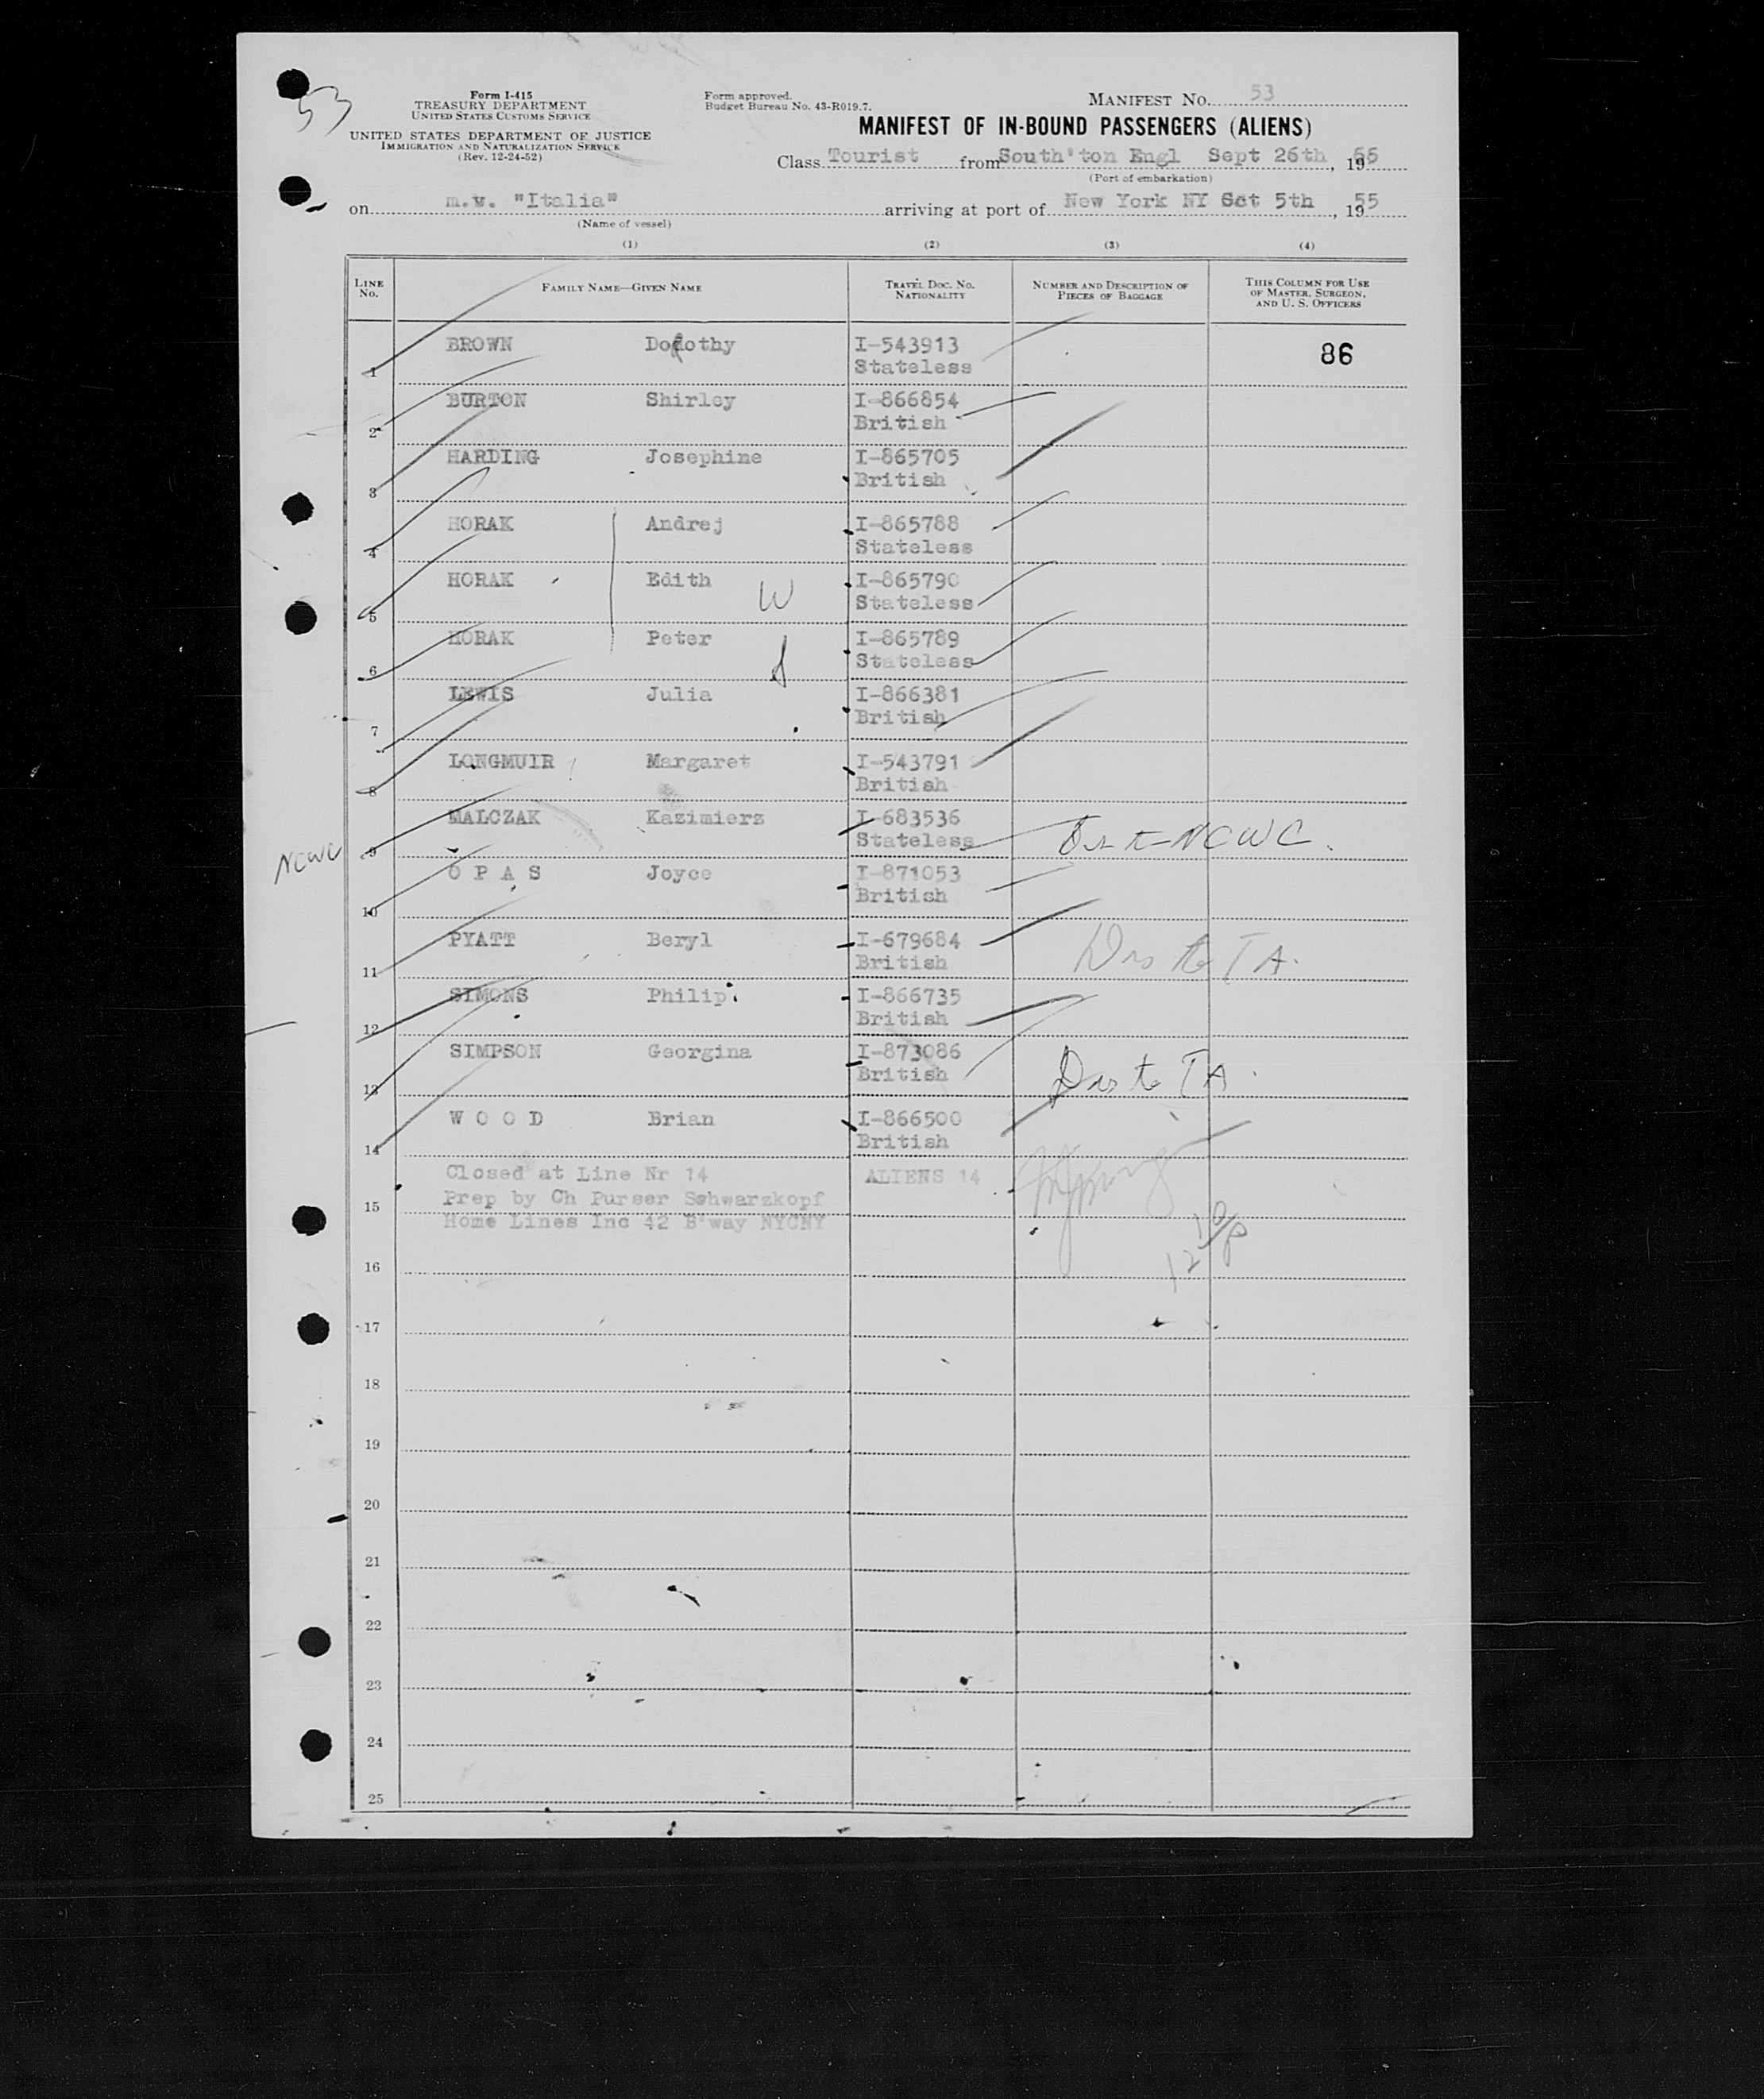 53
Form I-415
TREASURY DEPARTMENT
UNITED STATES CUSTOMS SERVICE
UNITED STATES DEPARTMENT OF JUSTICE
IMMIGRATION AND NATURALIZATION SERVICE
(Rev. 12-24-52)
Form approved.
Budget Bureau No. 43-R019.7.
MANIFEST NO. 53
MANIFEST OF IN-BOUND PASSENGERS (ALIENS)
Class Tourist from South'ton Engl Sept 26th, 1955
(Port of embarkation)
on m.v. "Italia" arriving at port of New York NY Oct 5th, 1955
(Name of vessel)
(1) (2) (3) (4)
LINE No. FAMILY NAME—GIVEN NAME TRAVEL DOC. NO. NATIONALITY NUMBER AND DESCRIPTION OF PIECES OF BAGGAGE THIS COLUMN FOR USE OF MASTER, SURGEON, AND U. S. OFFICERS
1 BROWN Dorothy I-543913 86
Stateless
2 BURTON Shirley I-866854
British
3 HARDING Josephine I-865705
British
4 HORAK Andrej I-865788
Stateless
5 HORAK Edith W I-865790
Stateless
6 HORAK Peter I-865789
Stateless
7 LEWIS Julia I-866381
British
8 LONGMUIR Margaret I-543791
British
NCWC 9 MALCZAK Kazimierz I-683536
Stateless NCWC.
10 O P A S Joyce I-871053
British
11 PYATT Beryl I-679684
British Drs to TA.
12 SIMONS Philip I-866735
British
13 SIMPSON Georgina I-873086
British Drs to TA.
14 W O O D Brian I-866500
British
Closed at Line Nr 14 ALIENS 14
Prep by Ch Purser Schwarzkopf
15 Home Lines Inc 42 B'way NYCNY
16
17
18
19
20
21
22
23
24
25